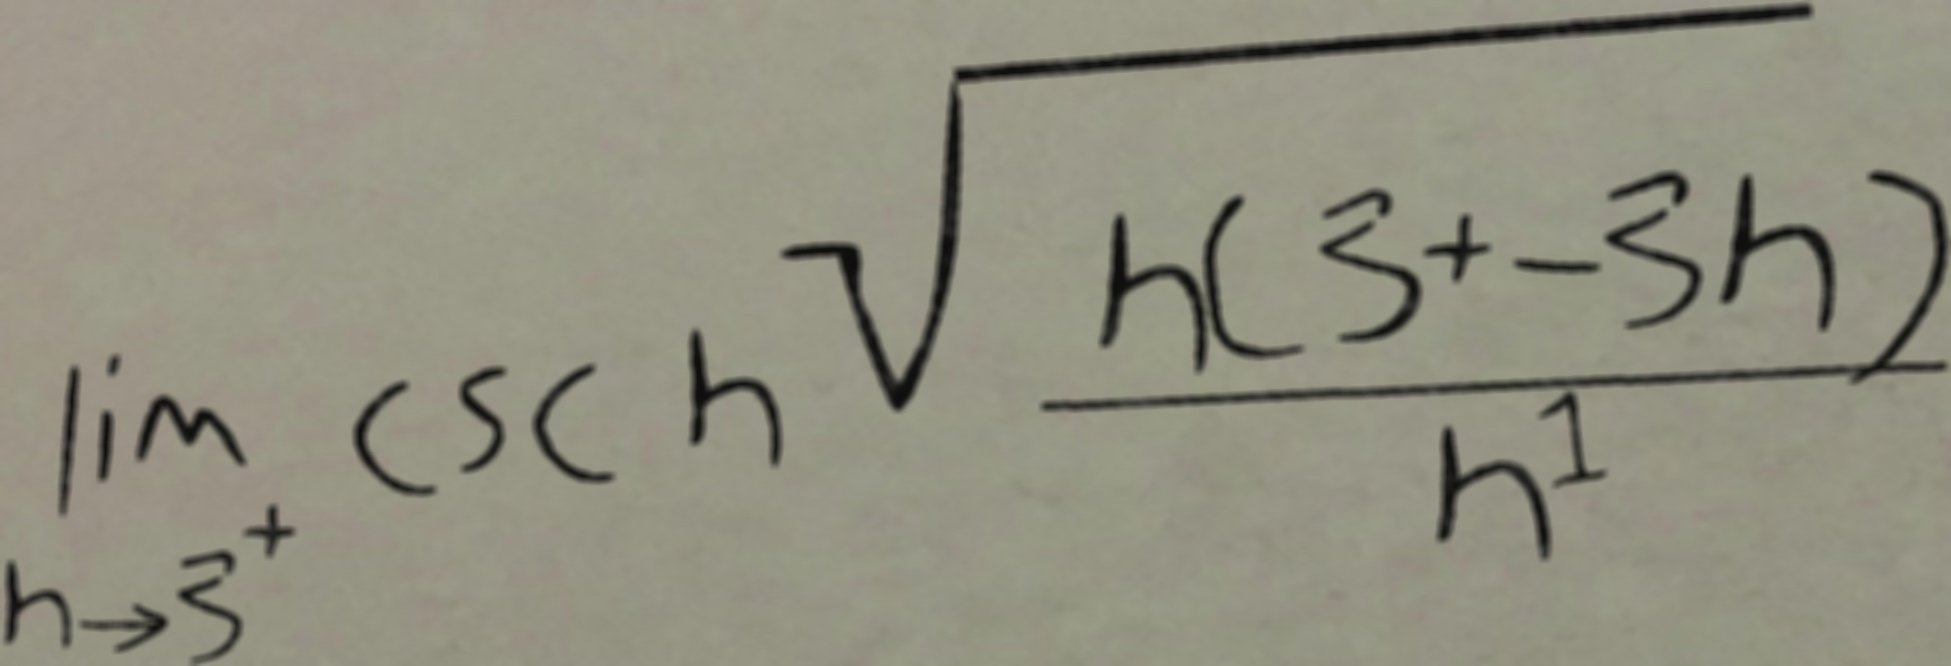 \lim_{h \to 3^+} \csc h \sqrt{\frac{h(3+-3h)}{h^1}}